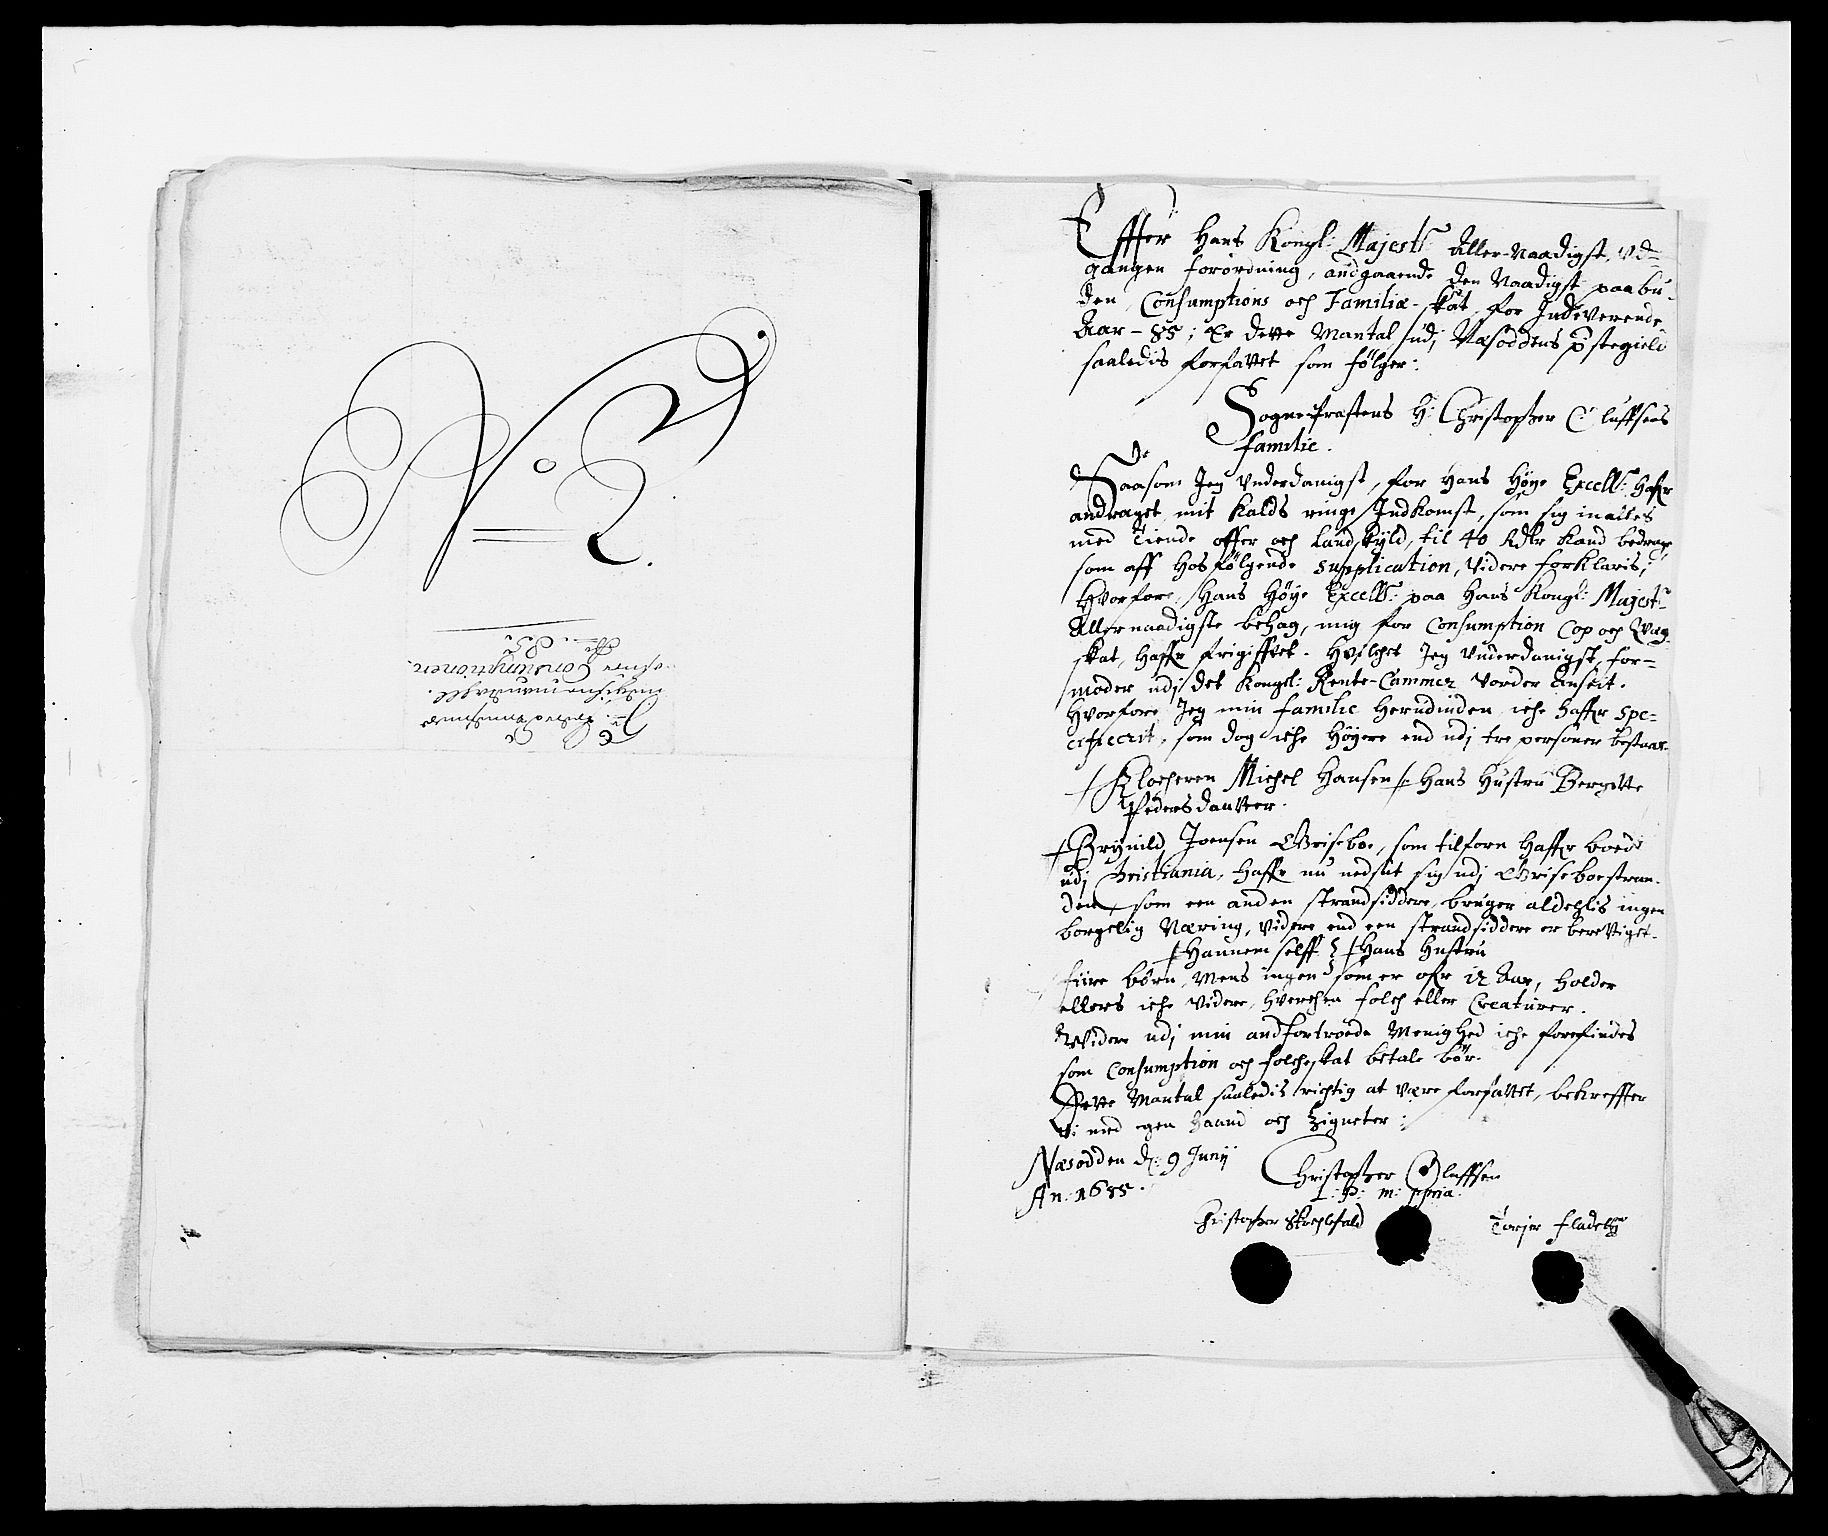 No 2.
Effter Hans Kongl: Majestz Aller-Naadigst, vd-
gangen forordning, andgaaende den Naadigst paabu-
den Consumptions och Familiæ-skat, for Indeverende
Aar-85; Er dette Mantal udj Næsoddens p̄stegield
saaledis forfattet som følger:
Sogne-Præstens H: Christopher Oluffsens
familie.
Saasom Jeg vnderdanigst, for Hans Høye Excell: Hafr
andraget mit Kalds ringe Indkomst, som sig in alles
med Tiende offer och Landskyld, til 40 Rdlr kand bedrage,
som aff Hosfølgende Supplication, videre forklaris;
Hvorfore, Hans Høye Excell: paa Hans Kongl: Majestz
Allernaadigste behag, mig for Consumption Cop och Qvæg
skat, Haffr frigiffvet. Hvilchet Jeg vnderdanigst, for-
moder udj det Kongel: Rente-Cammer vorder Anseet.
Hvorfore Jeg min familie Herudinden iche haffr spe-
cificerit, som dog iche Høyere end udj tre personer bestaar.
Klocheren Michel Hansen Hans Hustru Bergitte
Pedersdaatter.
Brynild Joensen Griseboe, som tilforn Haffr boed
udj Christiania, Haffr nu nedsat sig udj Griseboestran-
den, som een anden strandsiddere, bruger aldelis ingen
borgelig Næring, videre end een strandsiddere er beretiget.
Hannem selff Hans Hustru
fiire børn, Mens ingen som er ofr 12 Aar, holder
ellers iche videre, hverchen folch eller Creaturer.
Videre udj min andfortroede Menighed iche forefindes
som Consumption och folcheskat betale bør.
Dette Mantal saaledis richtig at være forfattet, bekreffter
Vi med egen Haand och Zigneter:
Næsodden d: 9 Junij
An: 1685.
Christopher Oluffsen
m: ppria.
Christopher Skochefald
Torjer fladeby